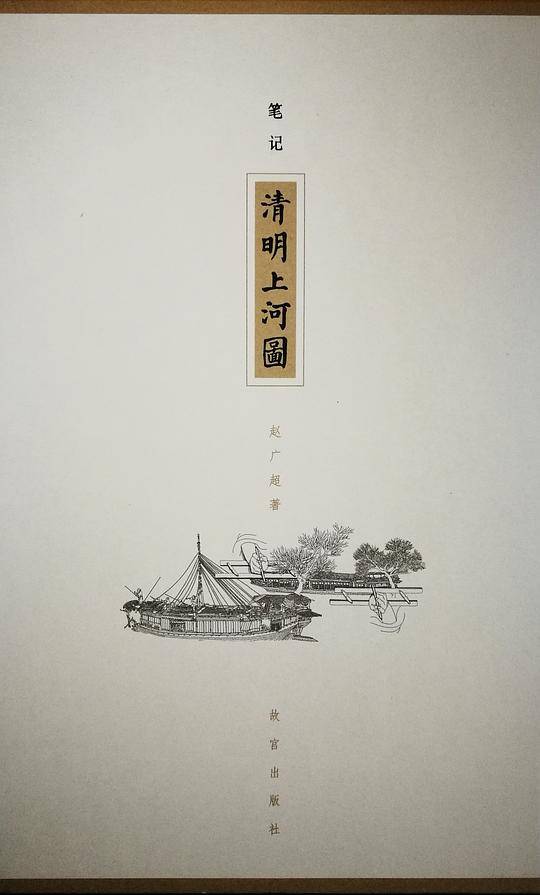 笔记
清明上河圖
赵广超著
故宫出版社